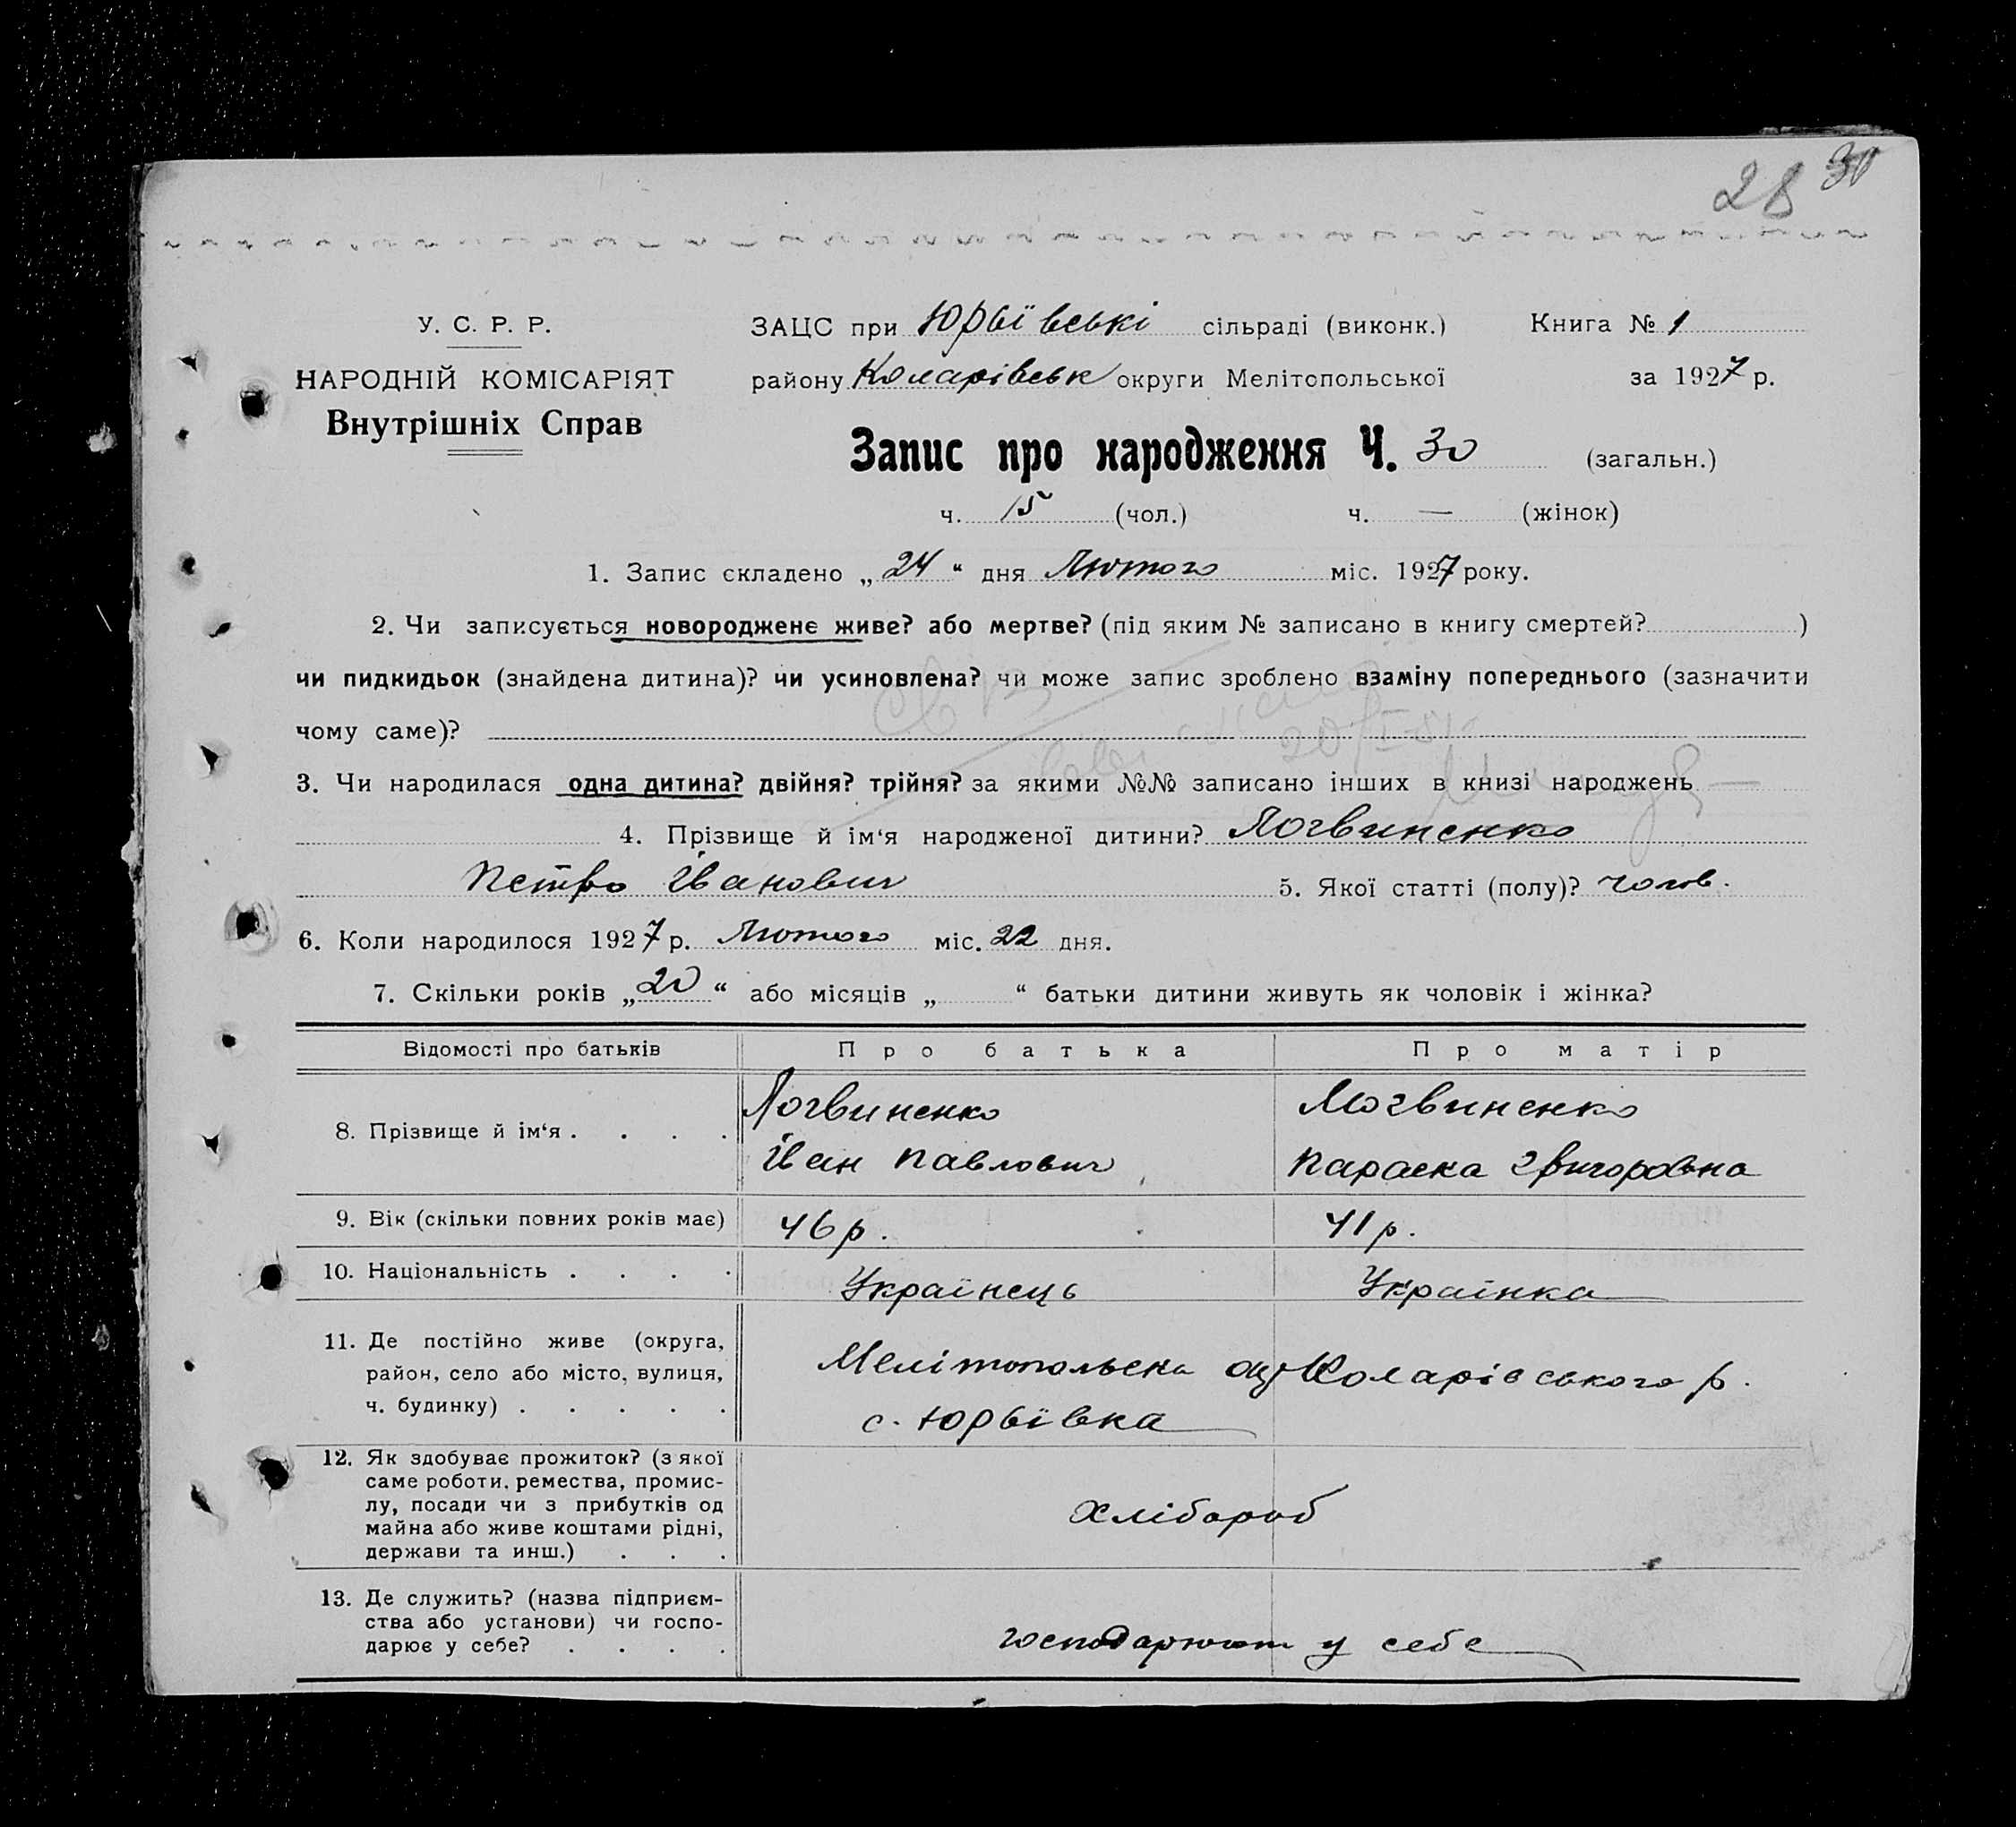 28 30
У. С. Р. Р.
НАРОДНІЙ КОМІСАРІЯТ
Внутрішніх Справ
ЗАЦС при Юрьївські сільраді (виконк.) Книга № 1
району Коларівськ округи Мелітопольської за 1927 р.
Запис про народження Ч. 30 (загальн.)
ч. 15 (чол.) ч. — (жінок)
1. Запис складено „ 24 “ дня Лютого міс. 1927 року.
2. Чи записується новородженє живе? або мертве? (під яким № записано в книгу смертей? )
чи пидкидьок (знайдена дитина)? чи усиновлена? чи може запис зроблено взаміну попереднього (зазначити
чому саме)?
3. Чи народилася одна дитина? двійня? трійня? за якими №№ записано інших в книзі народжень —
4. Прізвище й ім‘я народженої дитини? Логвиненко
Петро Іванович 5. Якої статті (полу)? чолов.
6. Коли народилося 1927 р. Лютого міс. 22 дня.
7. Скільки років „ 20 “ або місяців „ “ батьки дитини живуть як чоловік і жінка?
Відомості про батьків Про батька Про матір
8. Прізвище й ім‘я . . . . Логвиненко Логвиненко
Іван Павлович Параска Григоровна
9. Вік (скільки повних років має) 46 р. 41 р.
10. Національність . . . . Українець Українка
11. Де постійно живе (округа,
район, село або місто, вулиця,
ч. будинку) . . . . .
Мелітопольска Коларівського р.
с. Юрьївка
12. Як здобуває прожиток? (з якої
саме роботи, ремества, промис-
лу, посади чи з прибутків од
майна або живе коштами рідні,
держави та инш.) . . .
Хлібороб
13. Де служить? (назва підприєм-
ства або установи) чи госпо-
дарює у себе? . . . .
господарюют у себе